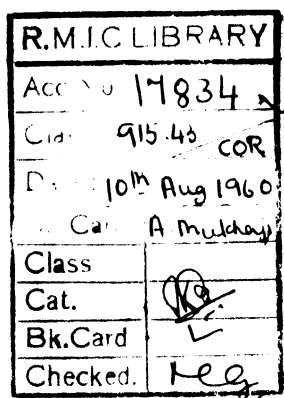 R.M.I.C LIBRARY
Acc No 17834
Cla 915.43
COR
D 10th Aug 1960
Ca A. Mukherji
Class
Cat.
Bk.Card ✓
Checked.